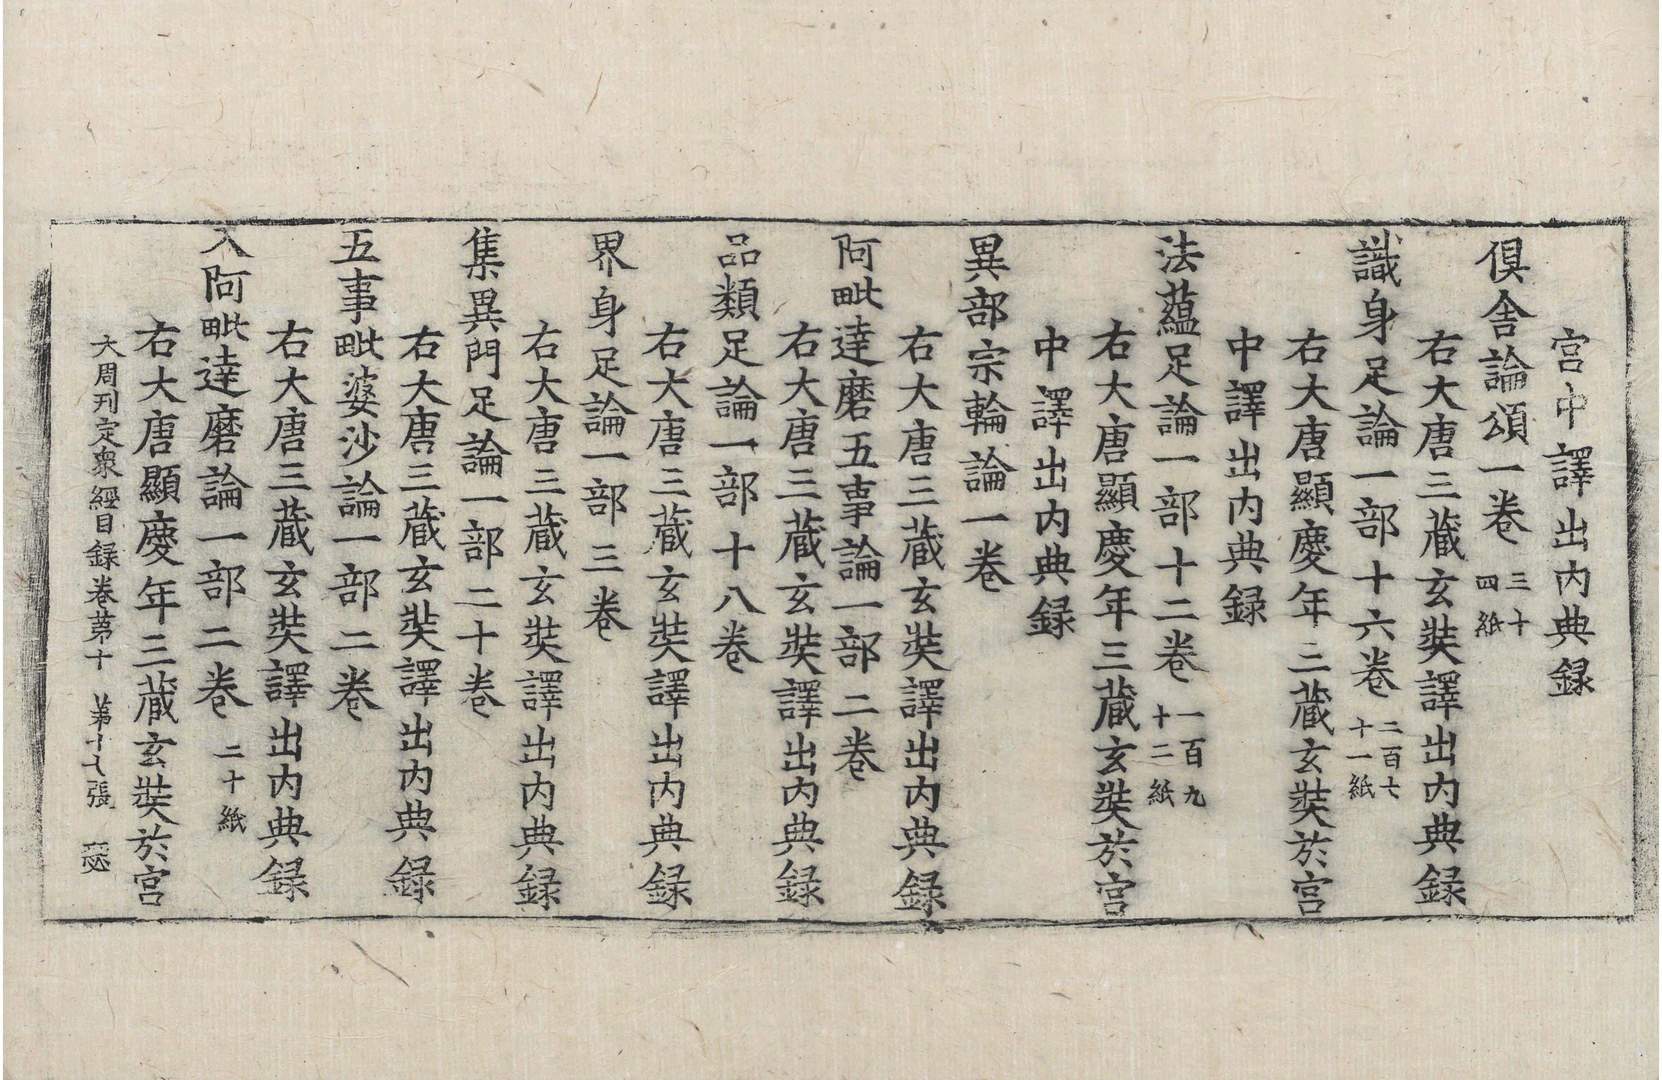 宮中譯出內典録
俱舍論頌一卷三十四紙
右大唐三藏玄奘譯出內典録
識身足論一部十六卷二百七十一紙
右大唐顯慶年三藏玄奘於宮
中譯出內典録
法蘊足論一部十二卷一百九十二紙
右大唐顯慶年三藏玄奘於宮
中譯出內典録
異部宗輪論一卷
右大唐三藏玄奘譯出內典録
阿毗達磨五事論一部二卷
右大唐三藏玄奘譯出內典録
品類足論一部十八卷
右大唐三藏玄奘譯出內典録
界身足論一部三卷
右大唐三藏玄奘譯出內典録
集異門足論一部二十卷
右大唐三藏玄奘譯出內典録
五事毗婆沙論一部二卷
右大唐三藏玄奘譯出內典録
入阿毗達磨論一部二卷二十紙
右大唐顯慶年三藏玄奘於宮
大周刊定衆經目録卷苐十 苐十張